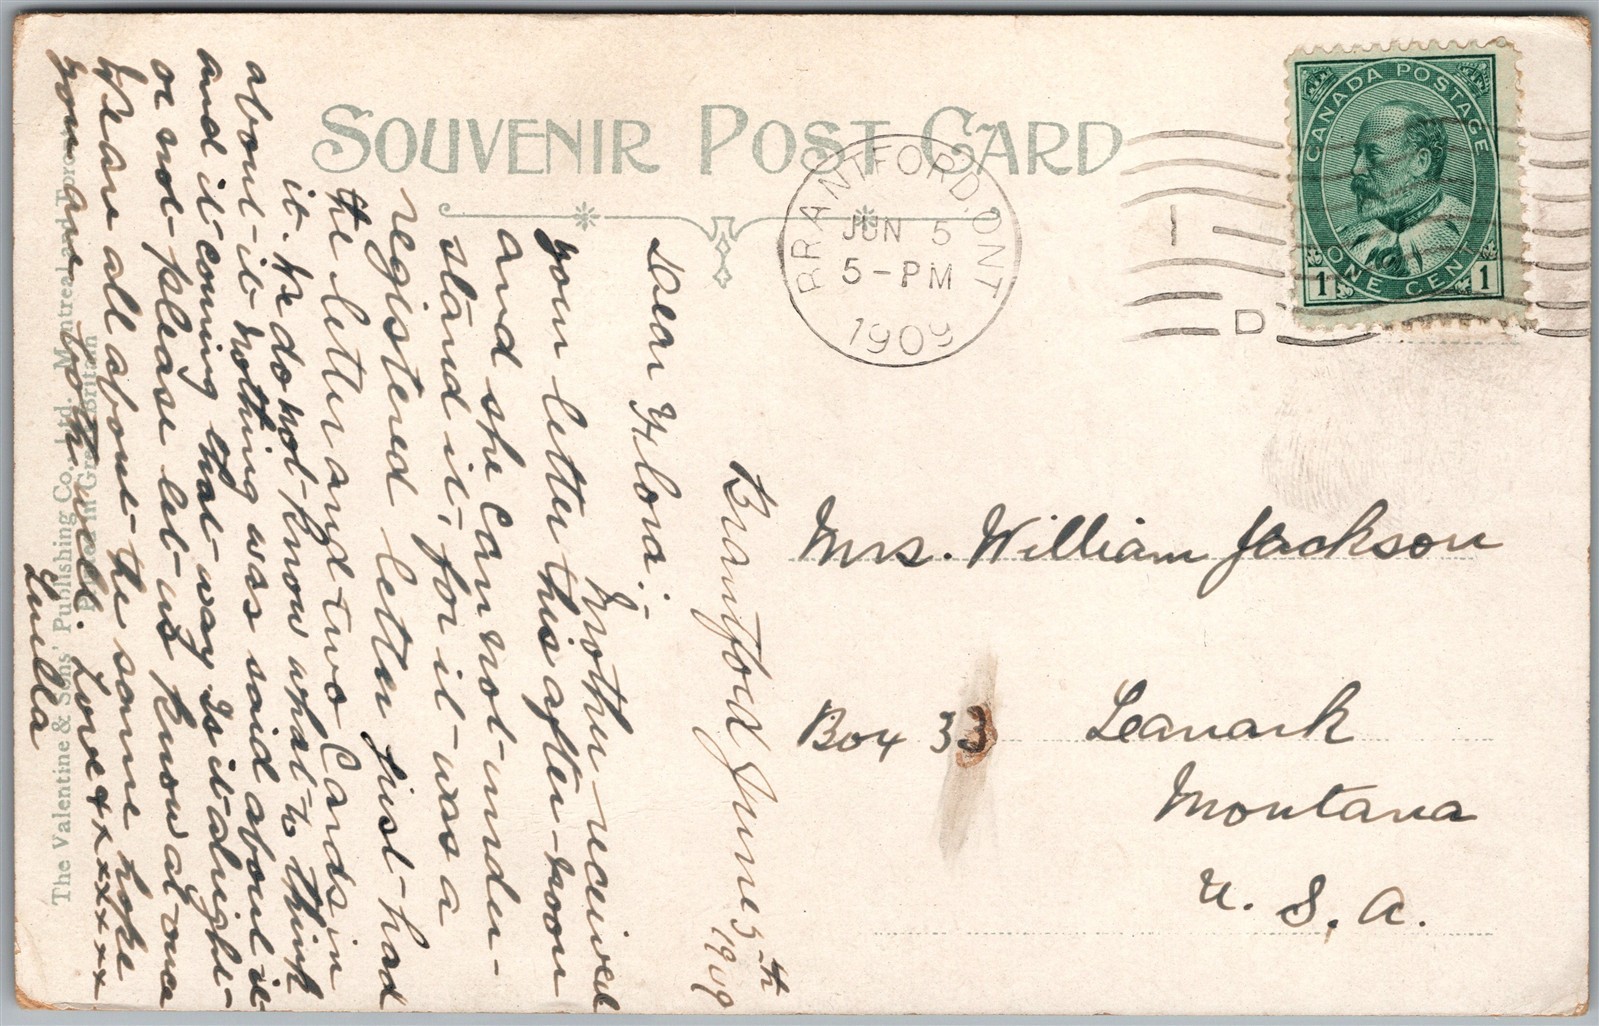 SOUVENIR POST CARD
BRANTFORD, ONT
JUN 5
5-PM
1909
1
D
CANADA POSTAGE
ONE CENT
1 1
Mrs. William Jackson
Box 33 Leanark
Montana
U. S. A.
Brantford June 5th
1909
Dear Flora:-
Mother received
your letter this after-noon
and she can not under-
stand it, for it was a
registered letter just had
the letter and two cards in
it. We do not know what to think
about it nothing was said about it
and it coming that way Is it alright
or not please let us know at once
Hear all about the same hope
you are both well. Love & xxxxxx
Luella
The Valentine & Sons' Publishing Co., Ltd. Montreal and Toronto
Printed in Great Britain